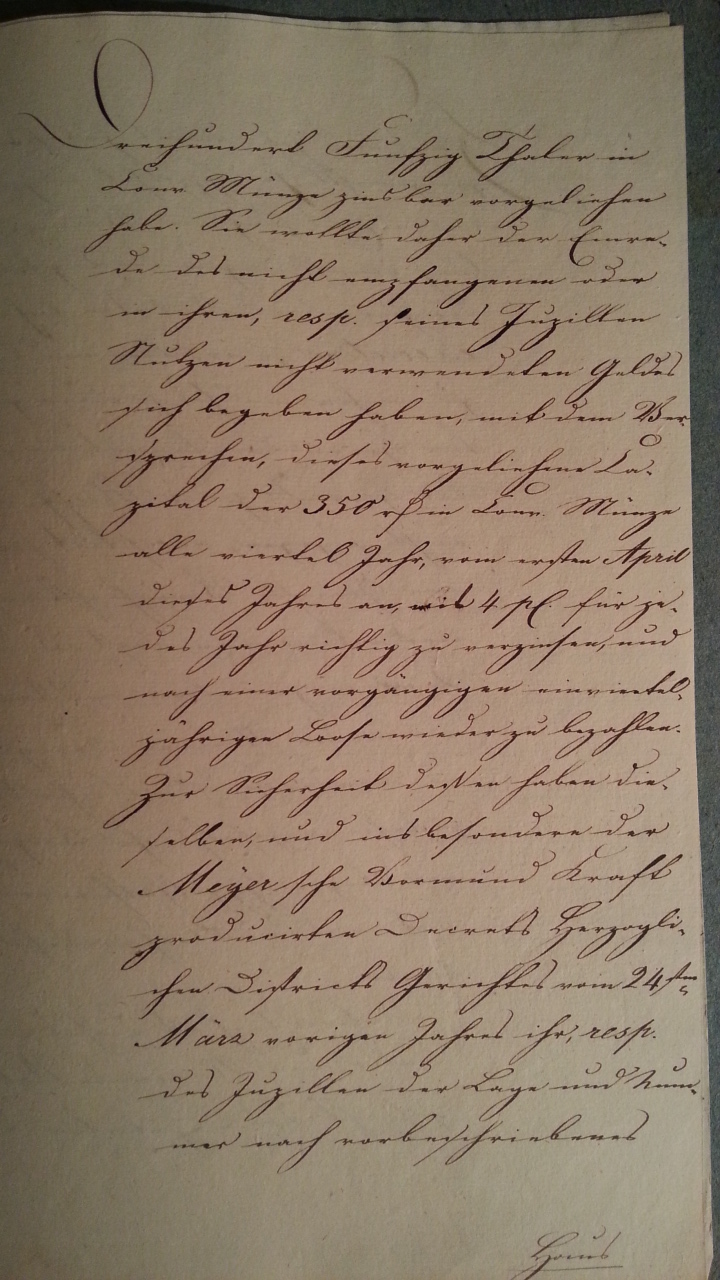 Dreihundert Funfzig Thaler in
Conv. Münze zinsbar vorgeliehen
habe. Sie wollte daher der Einre-
de des nicht empfangenen oder
in ihren, resp. seines Pupillen
Nutzen nicht verwendeten Geldes
sich begeben haben, mit dem Ver-
sprechen, dieses vorgeliehene Ca-
pital der 350 rß in Conv. Münze
alle viertel Jahr, vom ersten April
dieses Jahres an, mit 4 pC. für je-
des Jahr richtig zu verzinsen, und
nach einer vorgängigen einviertel-
jährigen Loose wieder zu bezahlen.
Zur Sicherheit deßen haben die-
selben, und insbesondere der
Meyersche Vormund Kraft
producirten Decrets Herzogli-
chen Districts Gerichtes vom 24sten
März vorigen Jahres ihr, resp.
des Pupillen der Lage und Num-
mer nach vorbeschriebenes
Haus